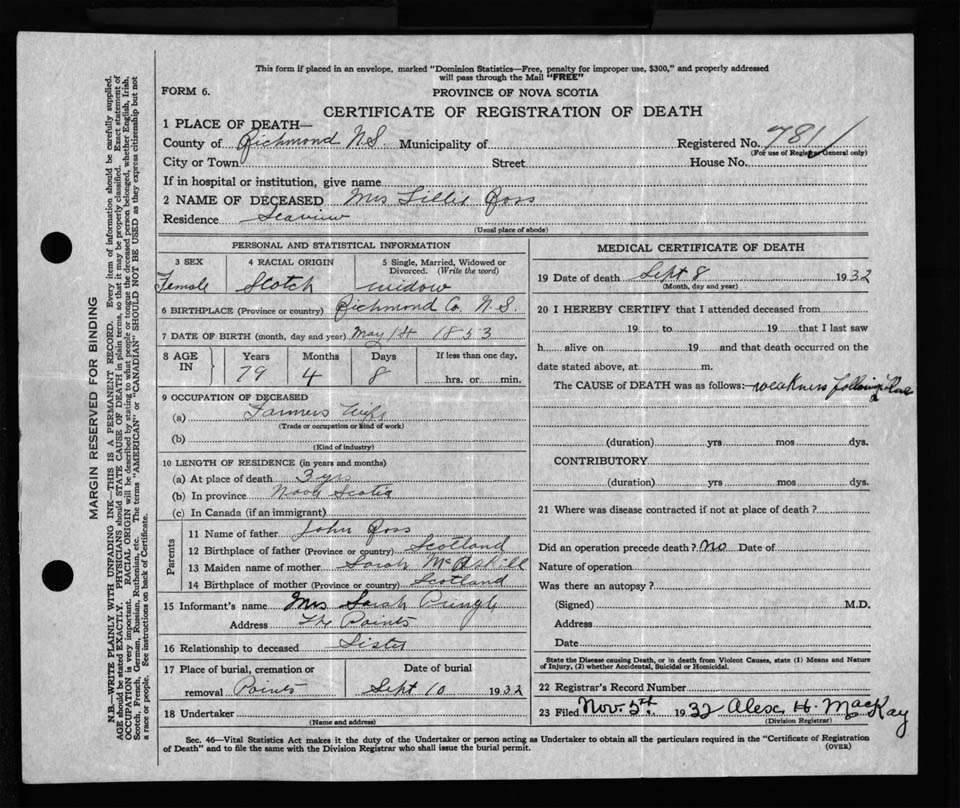 This form if placed in an envelope, marked "Dominion Statistics—Free, penalty for improper use, $300," and properly addressed
will pass through the Mail "FREE"
FORM 6.
PROVINCE OF NOVA SCOTIA
CERTIFICATE OF REGISTRATION OF DEATH
1 PLACE OF DEATH—
County of Richmond N.S. Municipality of Registered No. 7811
(For use of Registrar General only)
City or Town Street House No.
If in hospital or institution, give name
2 NAME OF DECEASED Mrs Lillie Ross
Residence Seaview
(Usual place of abode)
PERSONAL AND STATISTICAL INFORMATION
3 SEX 4 RACIAL ORIGIN 5 Single, Married, Widowed or
Divorced. (Write the word)
Female Scotch widow
6 BIRTHPLACE (Province or country) Richmond Co. N.S.
7 DATE OF BIRTH (month, day and year) May 1st 1853
8 AGE IN Years Months Days If less than one day,
79 4 8 hrs. or min.
9 OCCUPATION OF DECEASED
(a) Farmers Wife
(Trade or occupation or kind of work)
(b)
(Kind of industry)
10 LENGTH OF RESIDENCE (in years and months)
(a) At place of death 3 yrs
(b) In province Nova Scotia
(c) In Canada (if an immigrant)
Parents
11 Name of father John Ross
12 Birthplace of father (Province or country) Scotland
13 Maiden name of mother Sarah McAskill
14 Birthplace of mother (Province or country) Scotland
15 Informant's name Mrs Sarah Pringle
Address The Points
16 Relationship to deceased Sister
17 Place of burial, cremation or Date of burial
removal Points Sept 10 1932
18 Undertaker
(Name and address)
MEDICAL CERTIFICATE OF DEATH
19 Date of death Sept 8 1932
(Month, day and year)
20 I HEREBY CERTIFY that I attended deceased from
19 to 19 that I last saw
h alive on 19 and that death occurred on the
date stated above, at m.
The CAUSE of DEATH was as follows: weakness following
(duration) yrs mos dys.
CONTRIBUTORY
(duration) yrs mos dys.
21 Where was disease contracted if not at place of death?
Did an operation precede death? No Date of
Nature of operation
Was there an autopsy?
(Signed) M.D.
Address
Date
State the Disease causing Death, or in death from Violent Causes, state (1) Means and Nature
of Injury, (2) whether Accidental, Suicidal or Homicidal.
22 Registrar's Record Number
23 Filed Nov. 5th. 1932 Alex H. MacKay
(Division Registrar)
Sec. 46—Vital Statistics Act makes it the duty of the Undertaker or person acting as Undertaker to obtain all the particulars required in the "Certificate of Registration
of Death" and to file the same with the Division Registrar who shall issue the burial permit.
(OVER)
MARGIN RESERVED FOR BINDING
N.B.—WRITE PLAINLY WITH UNFADING INK—THIS IS A PERMANENT RECORD. Every item of information should be carefully supplied.
AGE should be stated EXACTLY. PHYSICIANS should STATE CAUSE OF DEATH in plain terms, so that it may be properly classified. Exact statement of
OCCUPATION is very important. RACIAL ORIGIN will be described by stating to what people or tongue the deceased person belonged, whether English, Irish,
Scotch, French, German, Russian, Ruthenian, etc. The terms "AMERICAN" or "CANADIAN" SHOULD NOT BE USED as they express citizenship but not
a race or people. See instructions on back of Certificate.